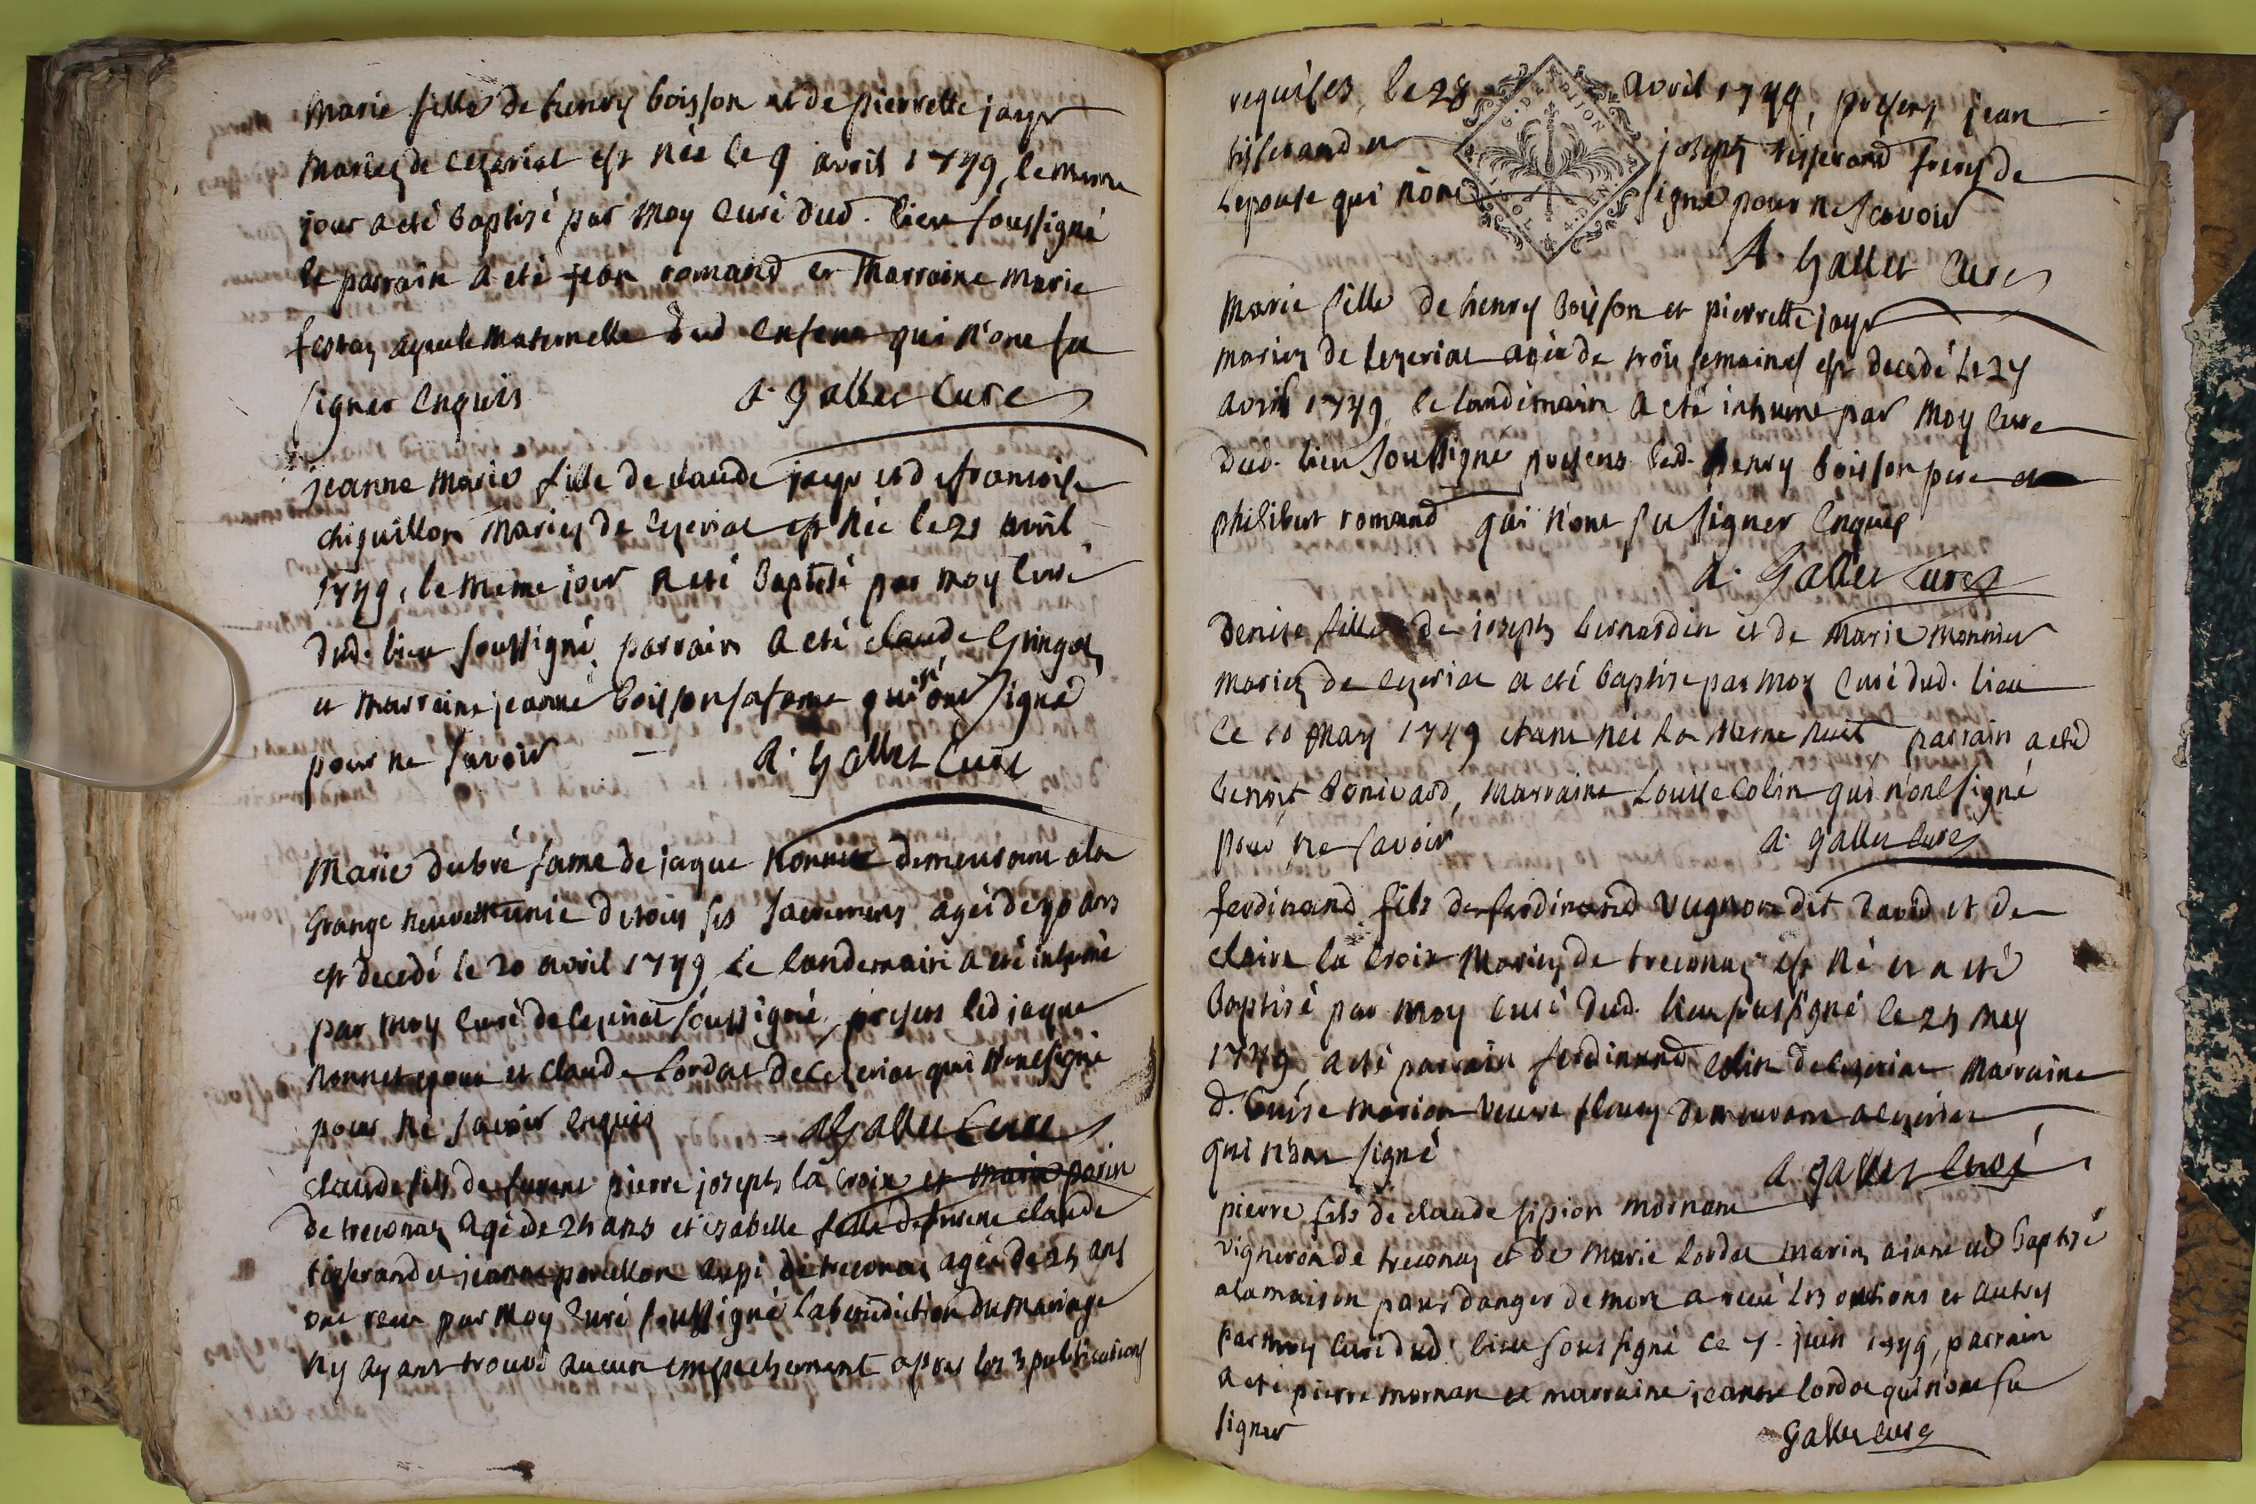 Marie fille de henry boisson et de pierrette jayr
mariez de ceyzeriat est née le 9 avril 1749, le meme
jour a eté baptisé par moy curé dud. lieu soussigné
le parrain a eté jean romand et marraine marie
ayeule maternelle dud enfant qui n'ont su
signer enquis A. Gallet Curé
jeanne marie fille de claude jayr et de francoise
chiguillon mariez de ceyzeriat est née le 21 avril
1749, le meme jour a eté baptisé par moy curé
dud. lieu soussigné, parrain a eté claude Gringoz
et marraine jeanne boisson sa fame qui n'ont signé
pour ne savoir A. Gallet Curé
Marie dubré fame de jaque Nonnet demeurant a la
Grange neuve munie de tous ses sacremens agée de 90 ans
est decedé le 20 avril 1749 le landemain a eté inhumé
par moy curé de ceyzeriat soussigné, presens led jaque
Nonnet epoux et claude Lordat de ceyzeriat qui n'ont signé
pour ne savoir enquis A Gallet Curé
claude fils de furent pierre joseph la croix et marie parin
de treconaz agé de 24 ans et izabelle fille de furent claude
tisserand et jeanne aussi de treconaz agée de 25 ans
ont receu par moy curé soussigné la benediction du mariage
ny ayant trouvé aucun empechement apres les 3 publications
requises, le 28 avril 1749, presens jean
tisserand et joseph tisserand freres de
l'epouse qui n'ont signé pour ne scavoir
G. D. DIJON
A. Gallet Curé
Marie fille de henry boisson et pierrette jayr
mariez de ceyzeriat agée de trois semaines est decedé le 27
avril 1749 le landemain a eté inhumé par moy curé
dud. lieu soussigné presens led. henry boisson pere et
philibert romand qui n'ont su signer enquis
A. Gallet Curé
Denise fille de joseph bernardin et de marie monnier
mariez de ceyzeriat a eté baptisé par moy curé dud. lieu
le 10 may 1749 etant née la meme nuit parrain a eté
benoit bonivard, marraine Louise Colin qui n'ont signé
pour ne savoir A. Gallet Curé
ferdinand fils de ferdinand vugnon dit david et de
claire la croix mariez de treconaz est né et a eté
baptisé par moy curé dud. lieu soussigné le 25 may
1749 a eté parrain ferdinand colin de ceyzeriat marraine
d. marion veuve fleury demeurant a ceyzeriat
qui n'ont signé A. Gallet Curé
pierre fils de claude sipion mornant
vigneron de treconaz et de marie lordat mariez aiant eté baptisé
a la maison pour danger de mort a receu les onctions et autres
par moy curé dud. lieu soussigné le 7. juin 1749, parrain
a eté pierre mornan et marraine jeanne lordat qui n'ont su
signer Gallet Curé